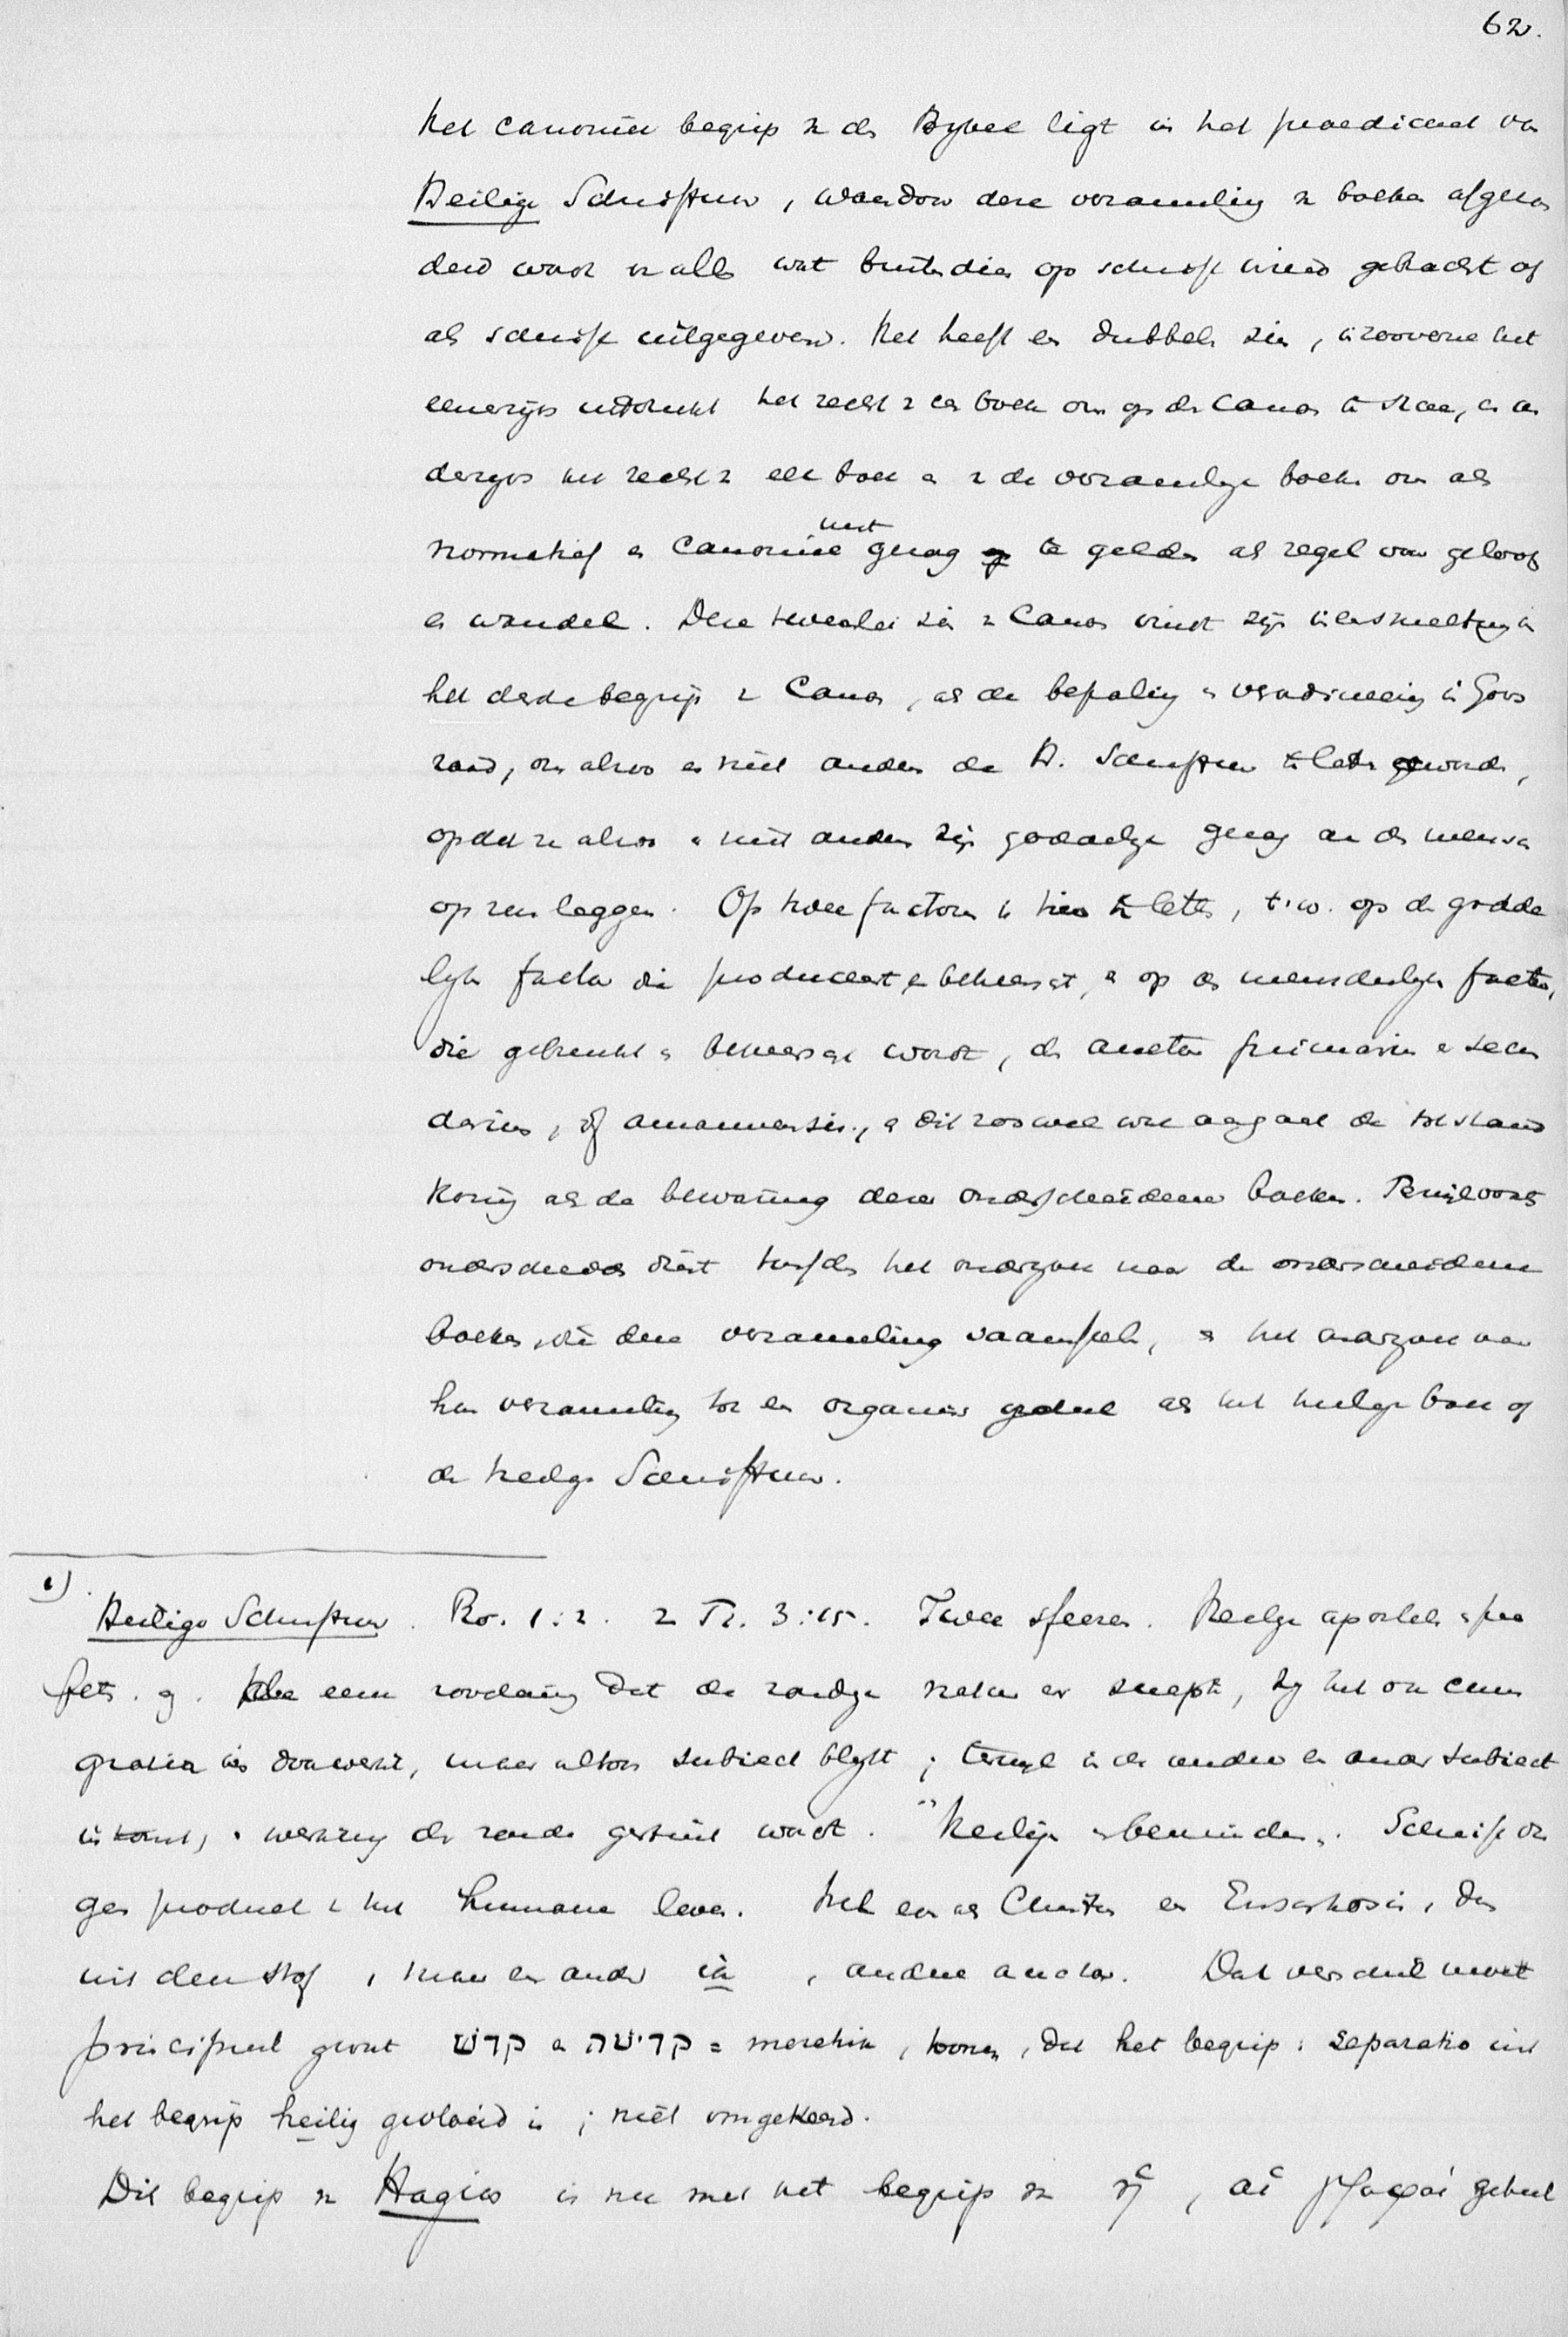 62.
Het canoniek begrip v. de Bybel ligt in het praedicaat van
Heilige Schriftuur, waardoor deze verzameling v. boeken afgeson
derd wordt v. alles wat buitendien op schrift wierd gebracht of
als schrift uitgegeven. Het heeft een dubbele zin, in zooverre het
eenerzyds uitdrukt het recht v. een boek om op de Canon te staan, en an
derzyds het recht v. elk boek en v. de verzamelde boeken om als
normatief en canoniek met gezag te gelden als regel van geloof
en wandel. Deze tweeërlei zin v. Canon vindt zyn ineensmelting in
het derde begrip v. Canon, als de bepaling en verordineering in Gods
raad, om alzoo en niet anders de H. Schriftuur te laten worden,
opdat ze alzoo en niet anders zyn goddelyk gezag aan de mensch
op zou leggen. Op twee factoren is hier te letten, t.w. op de godde
lyke factor die produceert en beheerscht, en op de menschelyke factor,
die gebruikt en beheerscht wordt, de auctor primarius en secun
darius, of amanuensis, en dit zoowel wat aangaat de totstand
koming als de bewaring dezer onderscheidene boeken. Terwyl voorts
onderscheiden dient tusschen het onderzoek naar de onderscheidene
boeken, die deze verzameling saamstellen, en het onderzoek naar
hun verzameling tot een organisch geheel als het heilige boek of
de heilige Schriftuur.
1) Heilige Schriftuur. Ro. 1:2. 2 Ti. 3:15. Twee sfeeren. Heilige apostelen en pro
feten. eene zoodanig dat de zondige natuur er insluipt, hy het om eene
gratia is doorwerkt, maar altoos subiect blyft; terwyl in de andere een ander subiect
inkomt, en werking der zonde gestuit wordt. "Heilige en beminde". Schrift on
ges product v. het humane leven. Net even als Christus een Ensarkosis, dus
uit den stof, maar een ander in, andere auctor. Dat verschil moet
principieel geout קדש en קדישה = meretrix, toonen, dat het begrip: separatio uit
het begrip heilig gevloeid is; niet omgekeerd.
Dit begrip v. Hagios is nu met het begrip v. ἡ, αἱ γραφαί geheel